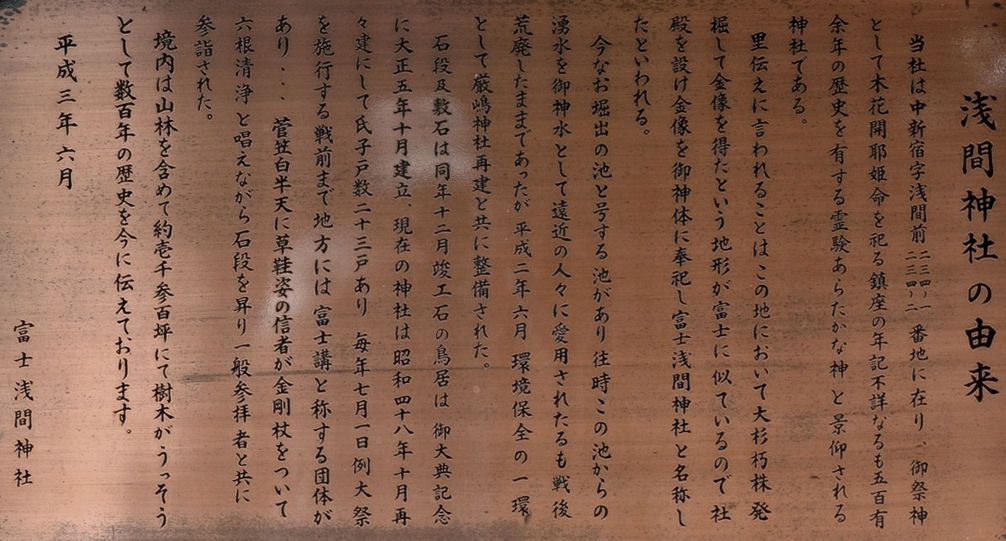 浅間神社の由来
当社は中新宿字浅間前二三四ノ一二三四ノ二番地に在り、御祭神
として木花開耶姫命を祀る鎮座の年記不詳なるも五百有
余年の歴史を有する霊験あらたかな神と景仰される
神社である。
里伝えに言われることはこの地において大杉朽株発
掘して金像を得たという地形が富士に似ているので社
殿を設け金像を御神体に奉祀し富士浅間神社と名称し
たといわれる。
今なお堀出の池と号する池があり往時この池からの
湧水を御神水として遠近の人々に愛用されたるも戦後
荒廃したままであったが平成二年六月環境保全の一環
として厳嶋神社再建と共に整備された。
石段及敷石は同年十二月竣工石の鳥居は御大典記念
に大正五年十月建立、現在の神社は昭和四十八年十月再
々建にして氏子戸数二十三戸あり毎年七月一日例大祭
を施行する戦前まで地方には富士講と称する団体が
あり・・・菅笠白半天に草鞋姿の信者が金剛杖をついて
六根清浄と唱えながら石段を昇り一般参拝者と共に
参詣された。
境内は山林を含めて約壱千参百坪にて樹木がうっそう
として数百年の歴史を今に伝えております。
平成三年六月
富士浅間神社